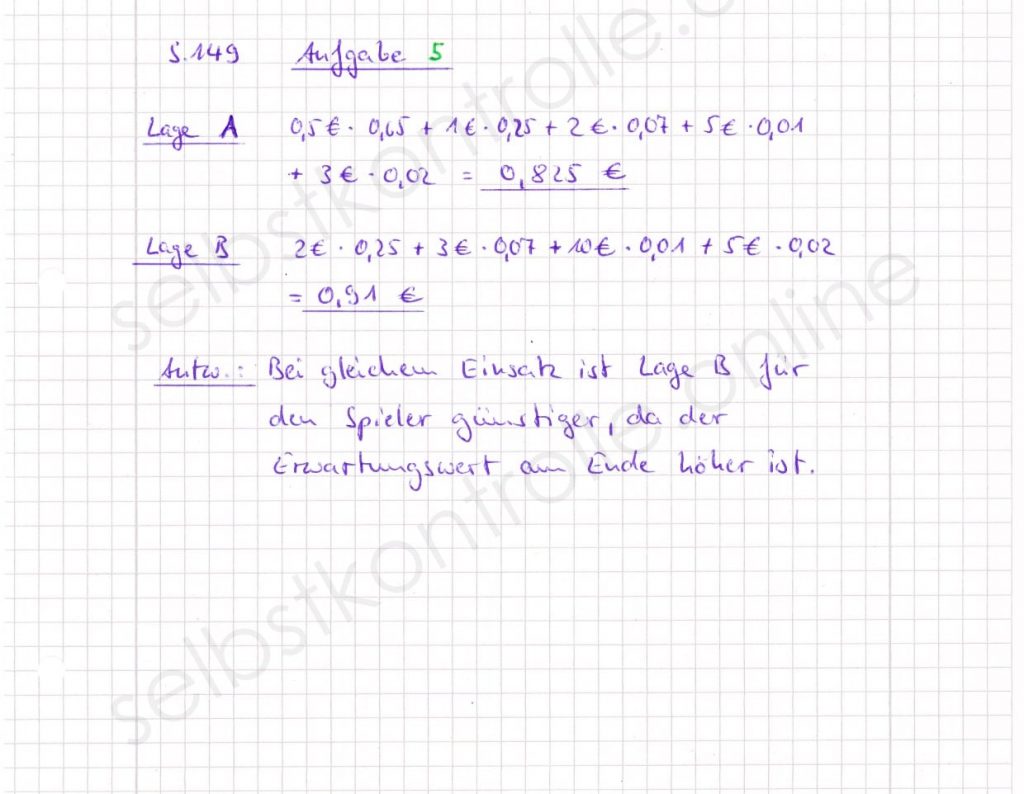 S. 149 Aufgabe 5
Lage A 0,5€ · 0,65 + 1€ · 0,25 + 2€ · 0,07 + 5€ · 0,01
+ 3€ · 0,02 = 0,825 €
Lage B 2€ · 0,25 + 3€ · 0,07 + 10€ · 0,01 + 5€ · 0,02
= 0,91 €
Antw.: Bei gleichem Einsatz ist Lage B für
den Spieler günstiger, da der
Erwartungswert am Ende höher ist.
selbstkontrolle.online
selbstkontrolle.online